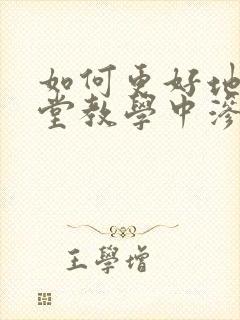 如何更好地
堂教學中滲
王學增